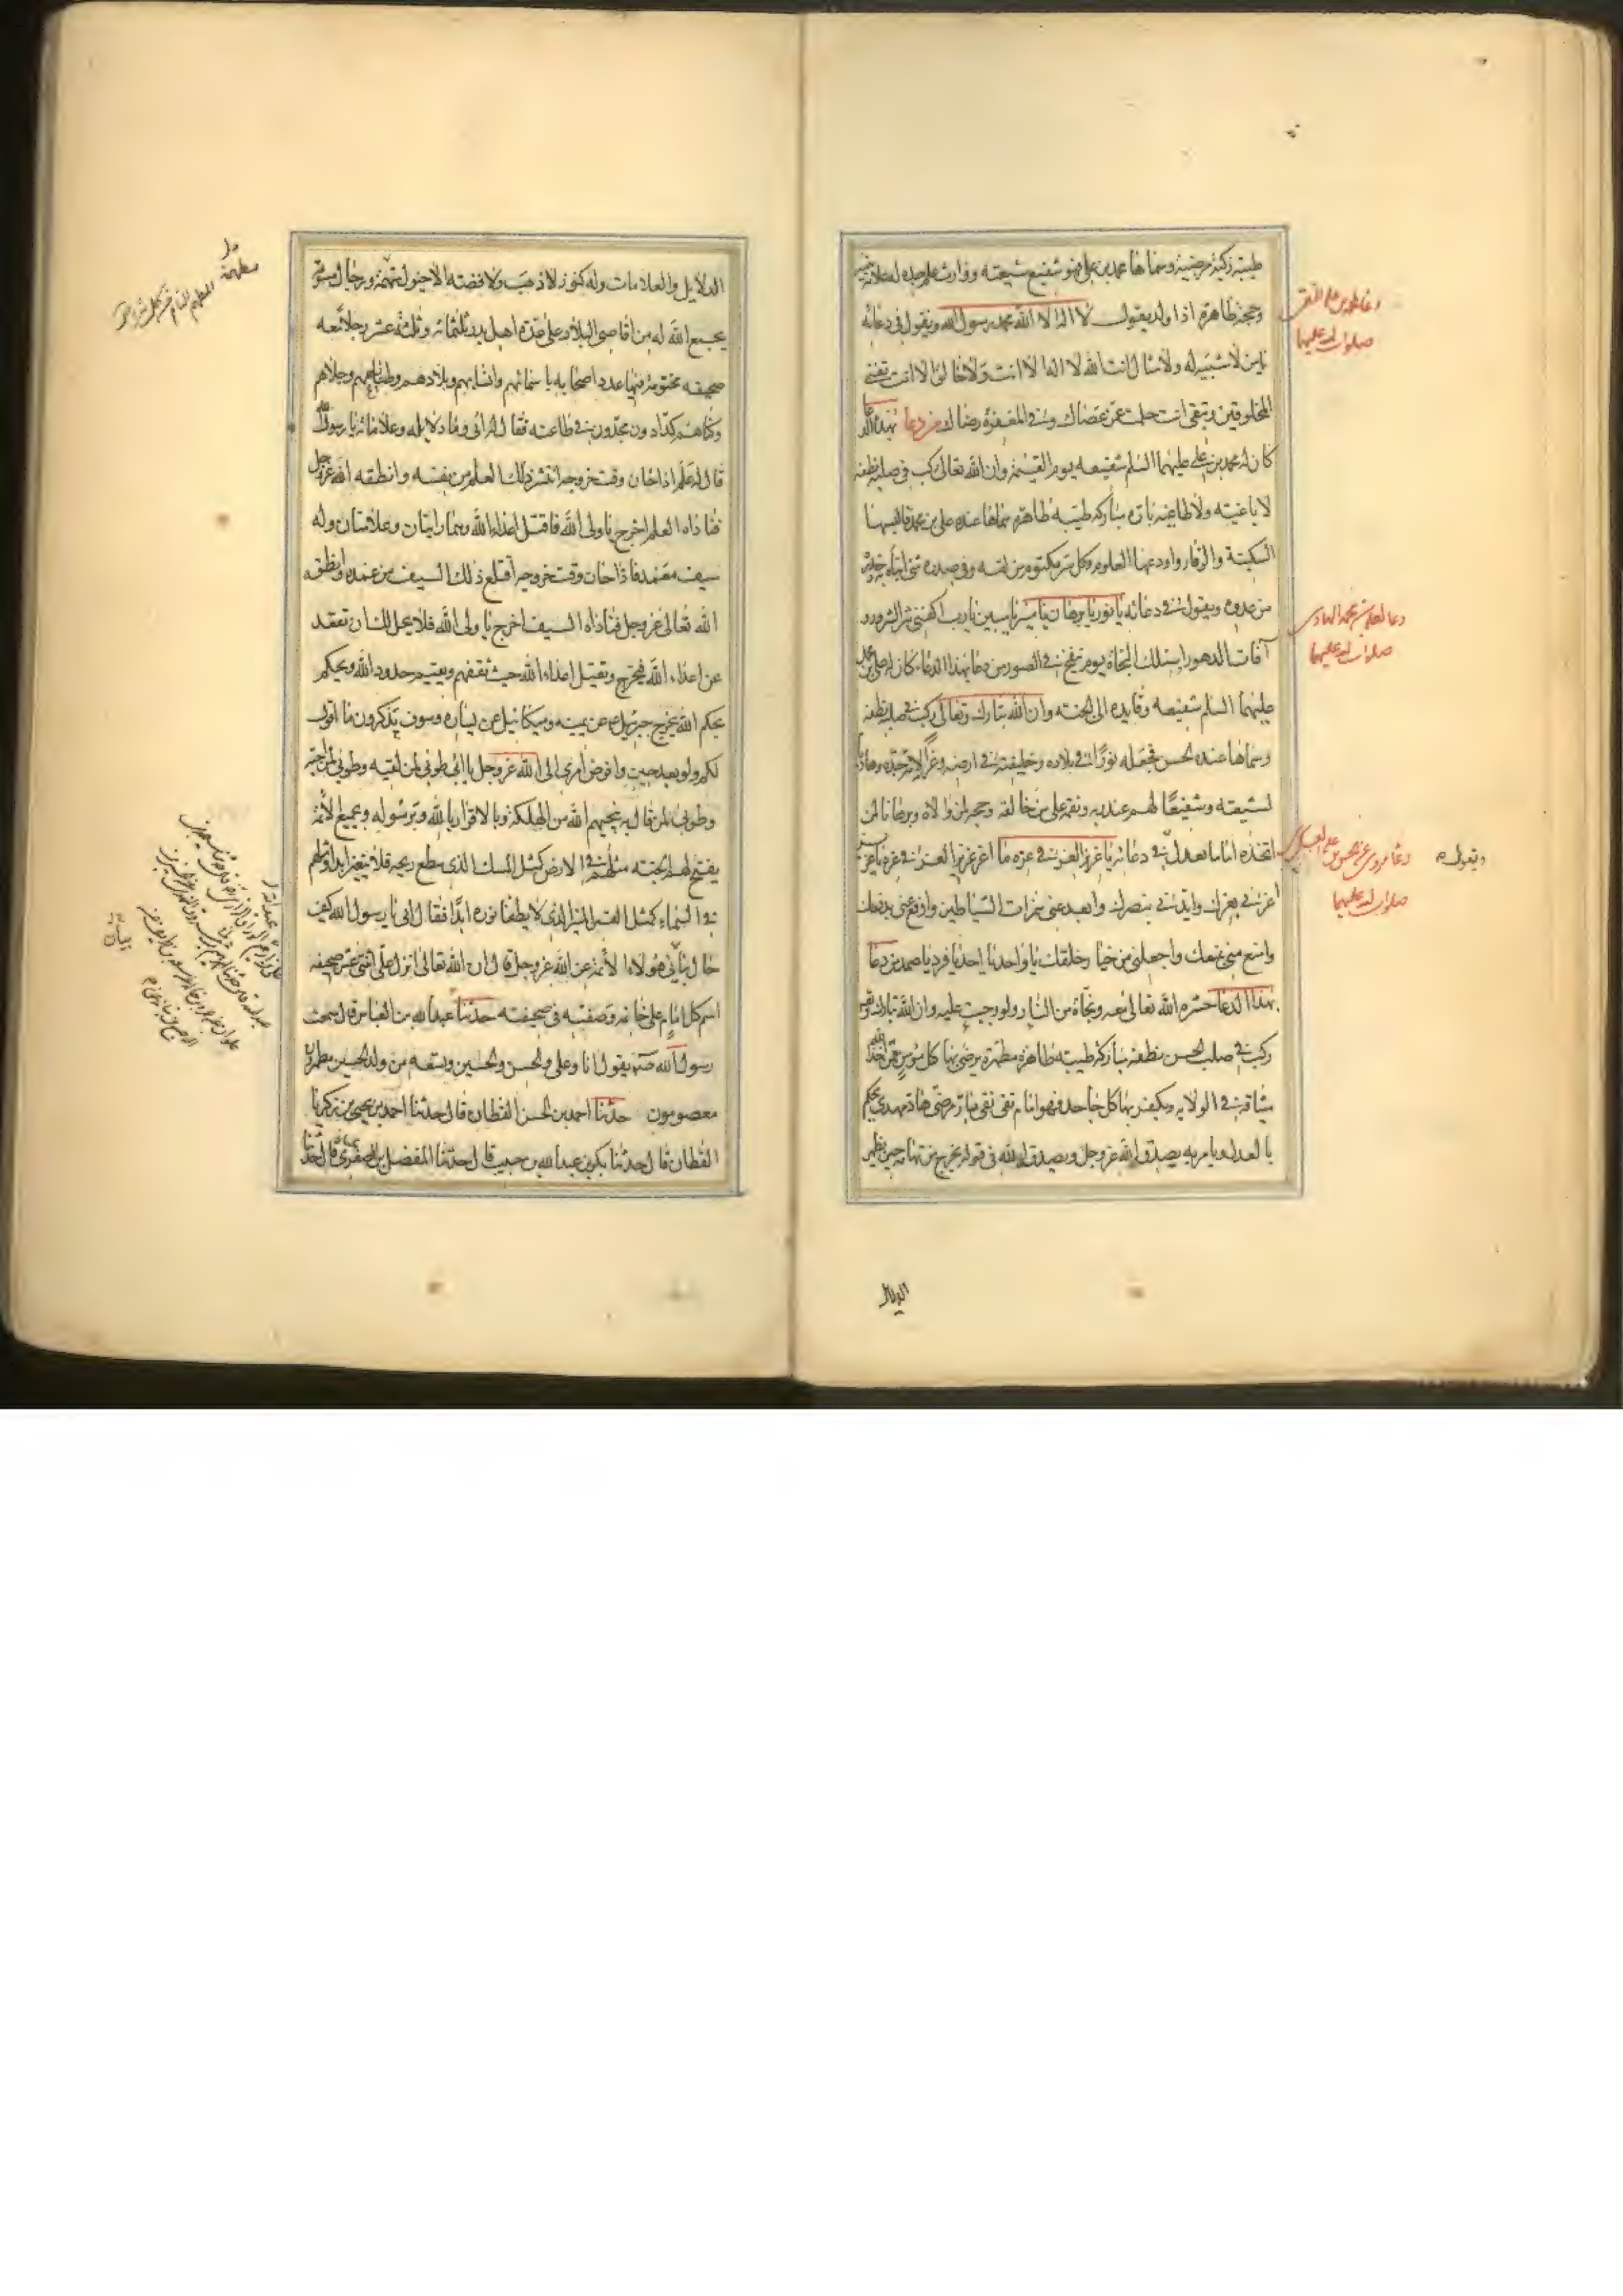 طيبة زكية مرضية وسماها محمد بن علي فهو شفيع شيعته ووارث علم جده له علامة بينة
وحجة ظاهرة اذا ولد يقول لا اله الا الله محمد رسول الله ويقول في دعائه
يا من لا شبيه له ولا مثال انت الله لا اله الا انت ولا خالق الا انت تفني
المخلوقين وتبقى انت حلمت عمن عصاك وفي المغفرة رضاك من دعا بهذا الدعا
كان محمد بن علي عليهما السلم شفيعه يوم القيمة وان الله تعالى ركب في صلبه نطفة
لا باغية ولا طاغية بارة مباركة طيبة طاهرة سماها عنده علي بن محمد فالبسها
السكينة والوقار واودعها العلوم وكل سر مكتوم من لقيه وفي صدره شيء انباه به وحذره
من عدوه ويقول في دعائه يا نور يا برهان يا منير يا مبين يا رب اكفني شر الشرور و
آفات الدهور واسئلك النجاة يوم ينفخ في الصور من دعا بهذا الدعاء كان علي بن محمد
عليهما السلم شفيعه وقايده الى الجنة وان الله تبارك وتعالى ركب في صلبه نطفة
وسماها عنده الحسن فجعله نورا في بلاده وخليفة في ارضه وعزا لامة جده وهاديا
لشيعته وشفيعا لهم عند ربه ونقمة على من خالفه وحجة لمن والاه وبرهانا لمن
اتخذه اماما يقول في دعائه يا عزيز العز في عزه ما اعز عزيز العز في عزه يا عزيز
اعزني بعزك وايدني بنصرك وابعد عني همزات الشياطين وادفع عني بدفعك
وامنع مني بمنعك واجعلني من خيار خلقك يا واحد يا احد يا فرد يا صمد من دعا
بهذا الدعا حشره الله تعالى معه ونجاه من النار ولو وجبت عليه وان الله تبارك وتعالى
ركب في صلب الحسن نطفة مباركة طيبة طاهرة مطهرة يرضى بها كل مؤمن ممن اخذ الله
ميثاقه في الولاية ويكفر بها كل جاحد فهو امام تقي نقي بار مرضي هاد مهدي يحكم
بالعدل ويامر به يصدق الله عز وجل ويصدقه الله في قوله يخرج من تهامة حين يظهر
دعا محمد بن علي التقي
صلوات الله عليهما
دعا لعلي بن محمد الهادي
صلوات الله عليهما
دعا مروي عن حسن بن علي العسكري
صلوات الله عليهما
ويقول
الدلايل
الدلايل والعلامات وله كنوز لا ذهب ولا فضة الا خيول مطهمة ورجال مسومة
يجمع الله له من اقاصي البلاد على عدة اهل بدر ثلثمائة وثلثة عشر رجلا معه
صحيفة مختومة فيها عدد اصحابه باسمائهم وانسابهم وبلادهم وطبايعهم وحلاهم
وكناهم كدادون مجدون في طاعته فقال له ابي وما دلايله وعلاماته يا رسول الله
قال له علم اذا حان وقت خروجه انتشر ذلك العلم من نفسه وانطقه الله عز وجل
فناداه العلم اخرج يا ولي الله فاقتل اعداء الله وهما رايتان وعلامتان وله
سيف مغمد فاذا حان وقت خروجه اقتلع ذلك السيف من غمده وانطقه
الله تعالى عز وجل فناداه السيف اخرج يا ولي الله فلا يحل لك ان تقعد
عن اعداء الله فيخرج ويقتل اعداء الله حيث ثقفهم ويقيم حدود الله ويحكم
بحكم الله يخرج جبرئيل عن يمينه وميكائيل عن يساره وسوف تذكرون ما اقول
لكم ولو بعد حين وافوض امري الى الله عز وجل يا ابي طوبى لمن لقيه وطوبى لمن احبه
وطوبى لمن قال به ينجيهم الله من الهلكة وبالاقرار بالله وبرسوله وبجميع الائمة
يفتح لهم الجنة مثلهم في الارض كمثل المسك الذي يسطع ريحه فلا يتغير ابدا ومثلهم
في السماء كمثل القمر المنير الذي لا يطفا نوره ابدا فقال ابي يا رسول الله كيف
حال بيان هولاء الائمة عن الله عز وجل قال ان الله تعالى انزل علي اثنتي عشرة صحيفة
اسم كل امام على خاتمه وصفته في صحيفته حدثنا عبد الله بن العباس قال سمعت
رسول الله صلم يقول انا وعلي والحسن والحسين وتسعة من ولد الحسين مطهرون
معصومون حدثنا احمد بن الحسن القطان قال حدثنا احمد بن يحيى بن زكريا
القطان قال حدثنا بكر بن عبد الله بن حبيب قال حدثنا المفضل بن الصقر قال حدثنا
مطهمة